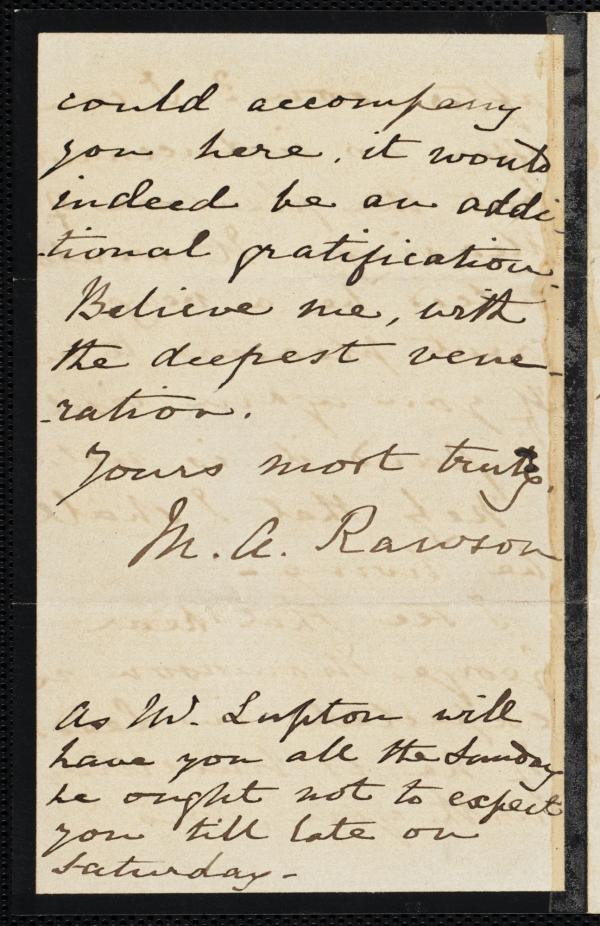 could accompany
you here, it would
indeed be an addi-
-tional gratification.
Believe me, with
the deepest vene-
-ration.
Yours most truly,
M. A. Rawson
As Mr. Lupton will
have you all the Sunday
he ought not to expect
you till late on
Saturday-